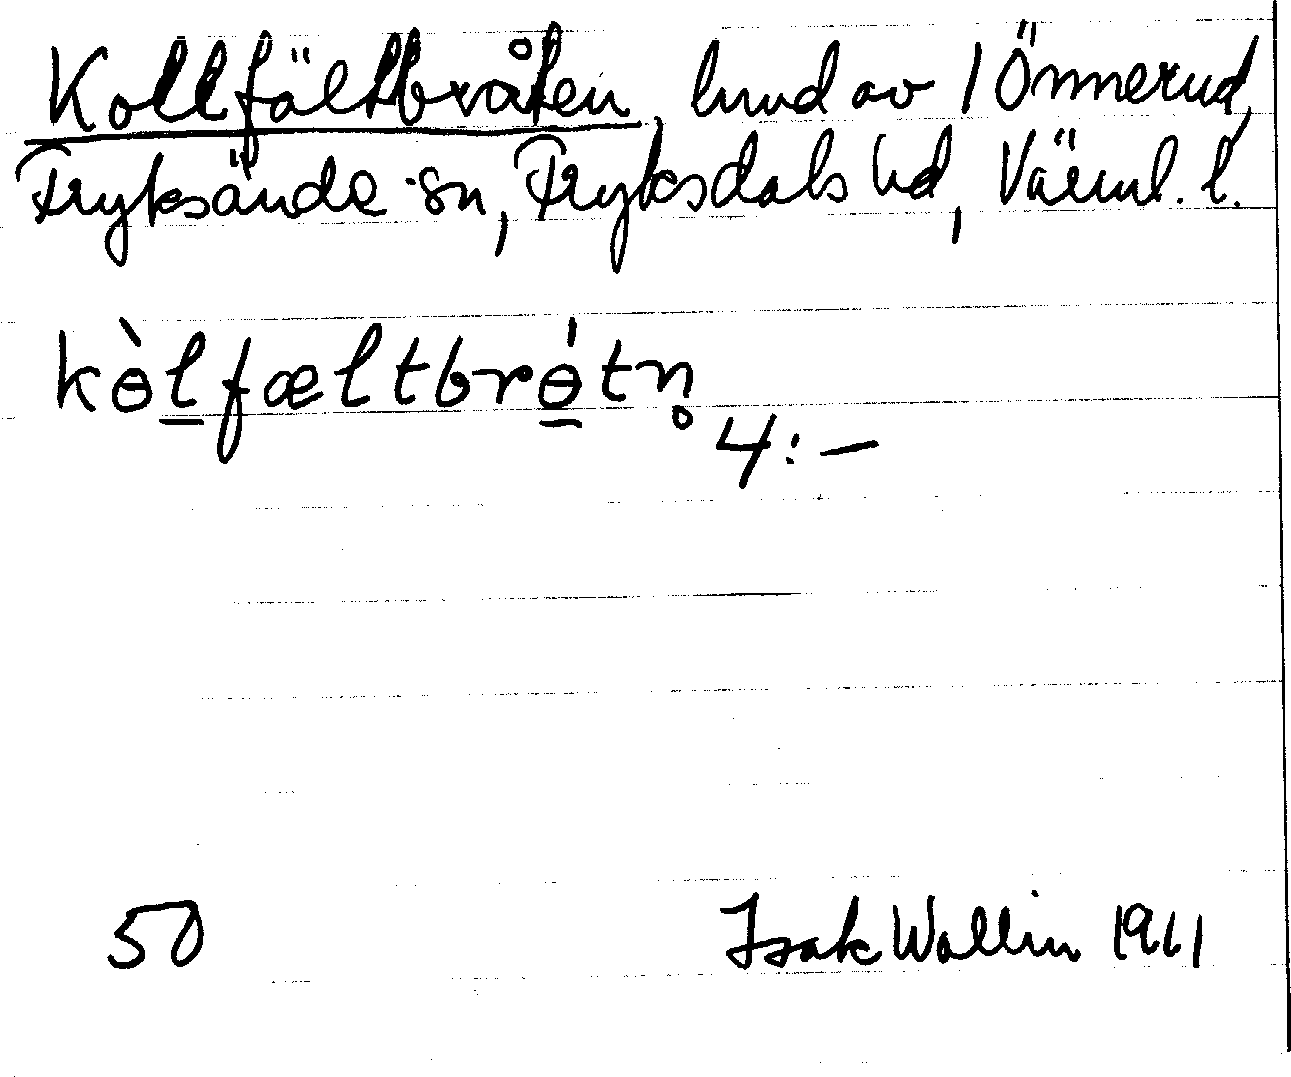 Kollfältbråten, lund av 1 Önnerud,
Fryksände sn, Fryksdals hd, Värml. l.
kɵ̀l̲fæltbrɵ̲́tn̥
4:-
50 Isak Wallin 1961